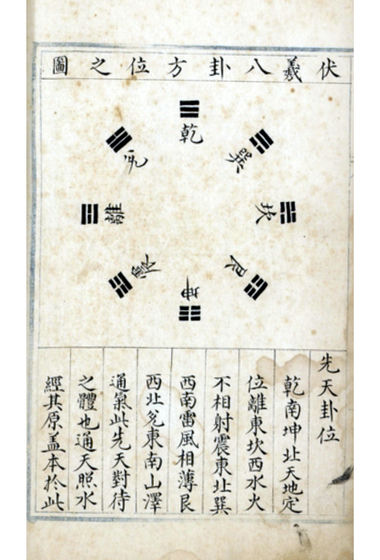 伏羲八卦方位之圖
乾
兌
巽
離
坎
震
艮
坤
先天卦位
乾南坤北天地定
位離東坎西水火
不相射震東北巽
西南雷風相薄艮
西北兌東南山澤
通氣此先天對待
之體也通天照水
經其原蓋本於此